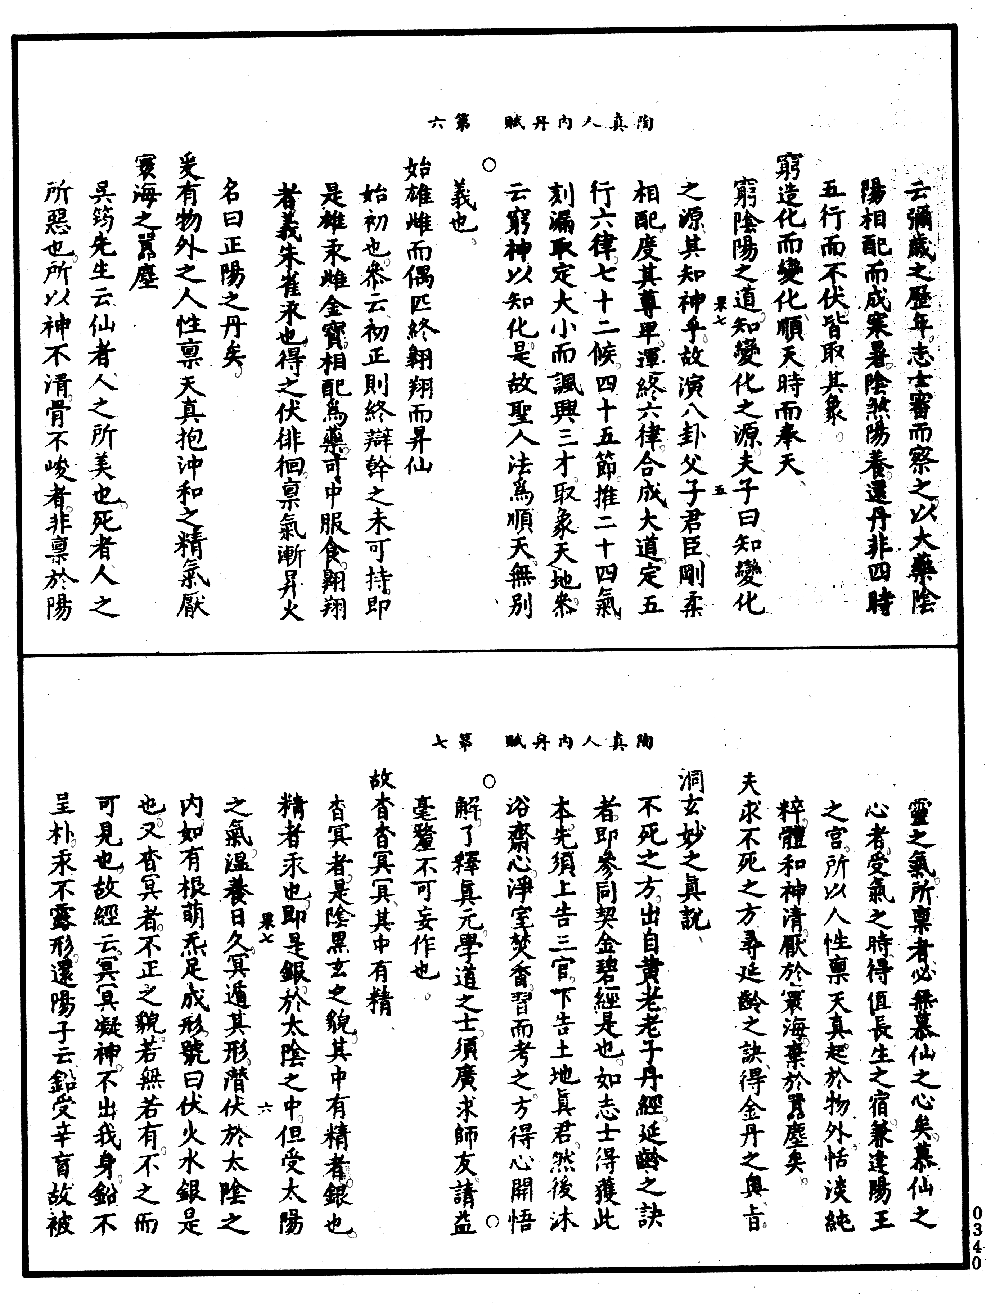 陶真人內丹賦　第六
云彌歲之歷年志士審而察之以大藥陰
陽相配而成寒暑陰煞陽養還丹非四時
五行而不伏皆取其象
窮造化而變化順天時而奉天
窮陰陽之道知變化之源夫子曰知變化
之源其知神乎故演八卦父子君臣剛柔
果七　五
相配度其尊卑運終六律合成大道定五
行六律七十二候四十五節推二十四氣
刻漏取定大小而諷興三才取象天地叅
云窮神以知化是故聖人法爲順天無別
義也
始雄雌而偶匹終翱翔而昇仙
始初也叅云初正則終辯幹之末可持即
是雄汞雌金寶相配爲藥可中服食翺翔
者義朱雀汞也得之伏徘徊稟氣漸昇火
名曰正陽之丹矣
爰有物外之人性稟天真抱沖和之精氣厭
寰海之囂塵
吳筠先生云仙者人之所美也死者人之
所惡也所以神不清骨不峻者非稟於陽
陶真人內丹賦　第七
靈之氣所稟者必無慕仙之心矣慕仙之
心者受氣之時得值長生之宿兼逢陽王
之宮所以人性稟天真起於物外恬淡純
粹體和神清厭於寰海棄於囂塵矣
夫求不死之方尋延齡之訣得金丹之奥旨
洞玄妙之真說
不死之方出自黃老老子丹經延齡之訣
者即參同契金碧經是也如志士得獲此
本先須上告三官下告土地真君然後沐
浴齋心淨室焚香習而考之方得心開悟
解了釋真元學道之士須廣求師友請益
毫釐不可妄作也
故杳杳冥冥其中有精
杳冥者是陰黑玄之貌其中有精者銀也
精者汞也即是銀於太陰之中但受太陽
果七　六
之氣溫養日久冥遁其形潛伏於太陰之
內如有根萌炁足成形號曰伏火水銀是
也又杳冥者不正之貌若無若有不之而
可見也故經云冥冥凝神不出我身鉛不
呈朴汞不露形還陽子云鉛受辛盲故被
0340